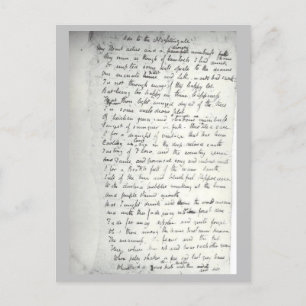 Ode to the Nightingale
My Heart aches and a drowsy numbness
My sense as though of hemlock I had
Or emptied some dull opiate to the drains
One minute and Lethe-wards had sunk
Tis not through envy of thy happy lot
But being too happy in thine happiness
That thou light winged dryad of the trees
In some melodious plot
Of beechen green and shadows numberless
Singest of summer in full-throated ease
O for a draught of vintage that has been
Cooling an age in the deep delved earth
Tasting of Flora and the country green
And Dance and provençal song and sunburnt mirth
O for a Beaker full of the warm South
Full of the true and blushful Hippocrene
With cluster'd bubbles winking at the brim
And purple stained mouth
That I might drink and leave the world unseen
And with thee fade away into the forest dim
Fade far away dissolve and quite forget
What thou among the leaves hast never known
The weariness, the fever and the fret
Here where Men sit and hear each other groan
Where palsy shakes a few sad last grey hairs
Where youth grows pale and thin and old